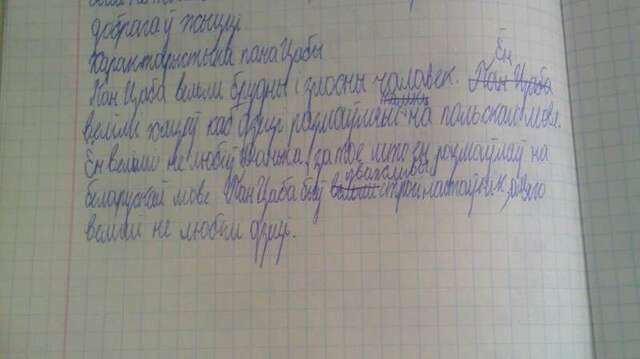 добрага ў жыцці
Характарыстыка пана Цабы
Пан Цаба вельмі брудны і злосны чалавек. Ён Пан Цаба
вельмі хацеў каб дзеці размаўлялі на польскай мове.
Ён вельмі не любіў за тое што ён размаўляў на
беларускай мове Пан Цаба быў вельмі настаўнік, яго
вельмі не любілі дзеці.